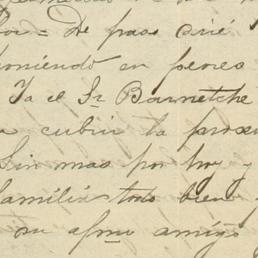 De paso diré
poniendo en peores
Ya el Sr Barnetche
a cubrir la prox
Sin mas por hoy y
familia todo bien y
su afmo amigo